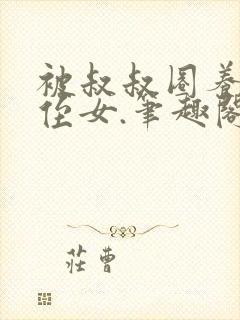 被叔叔圈养
侄女.笔趣阁
莊曹